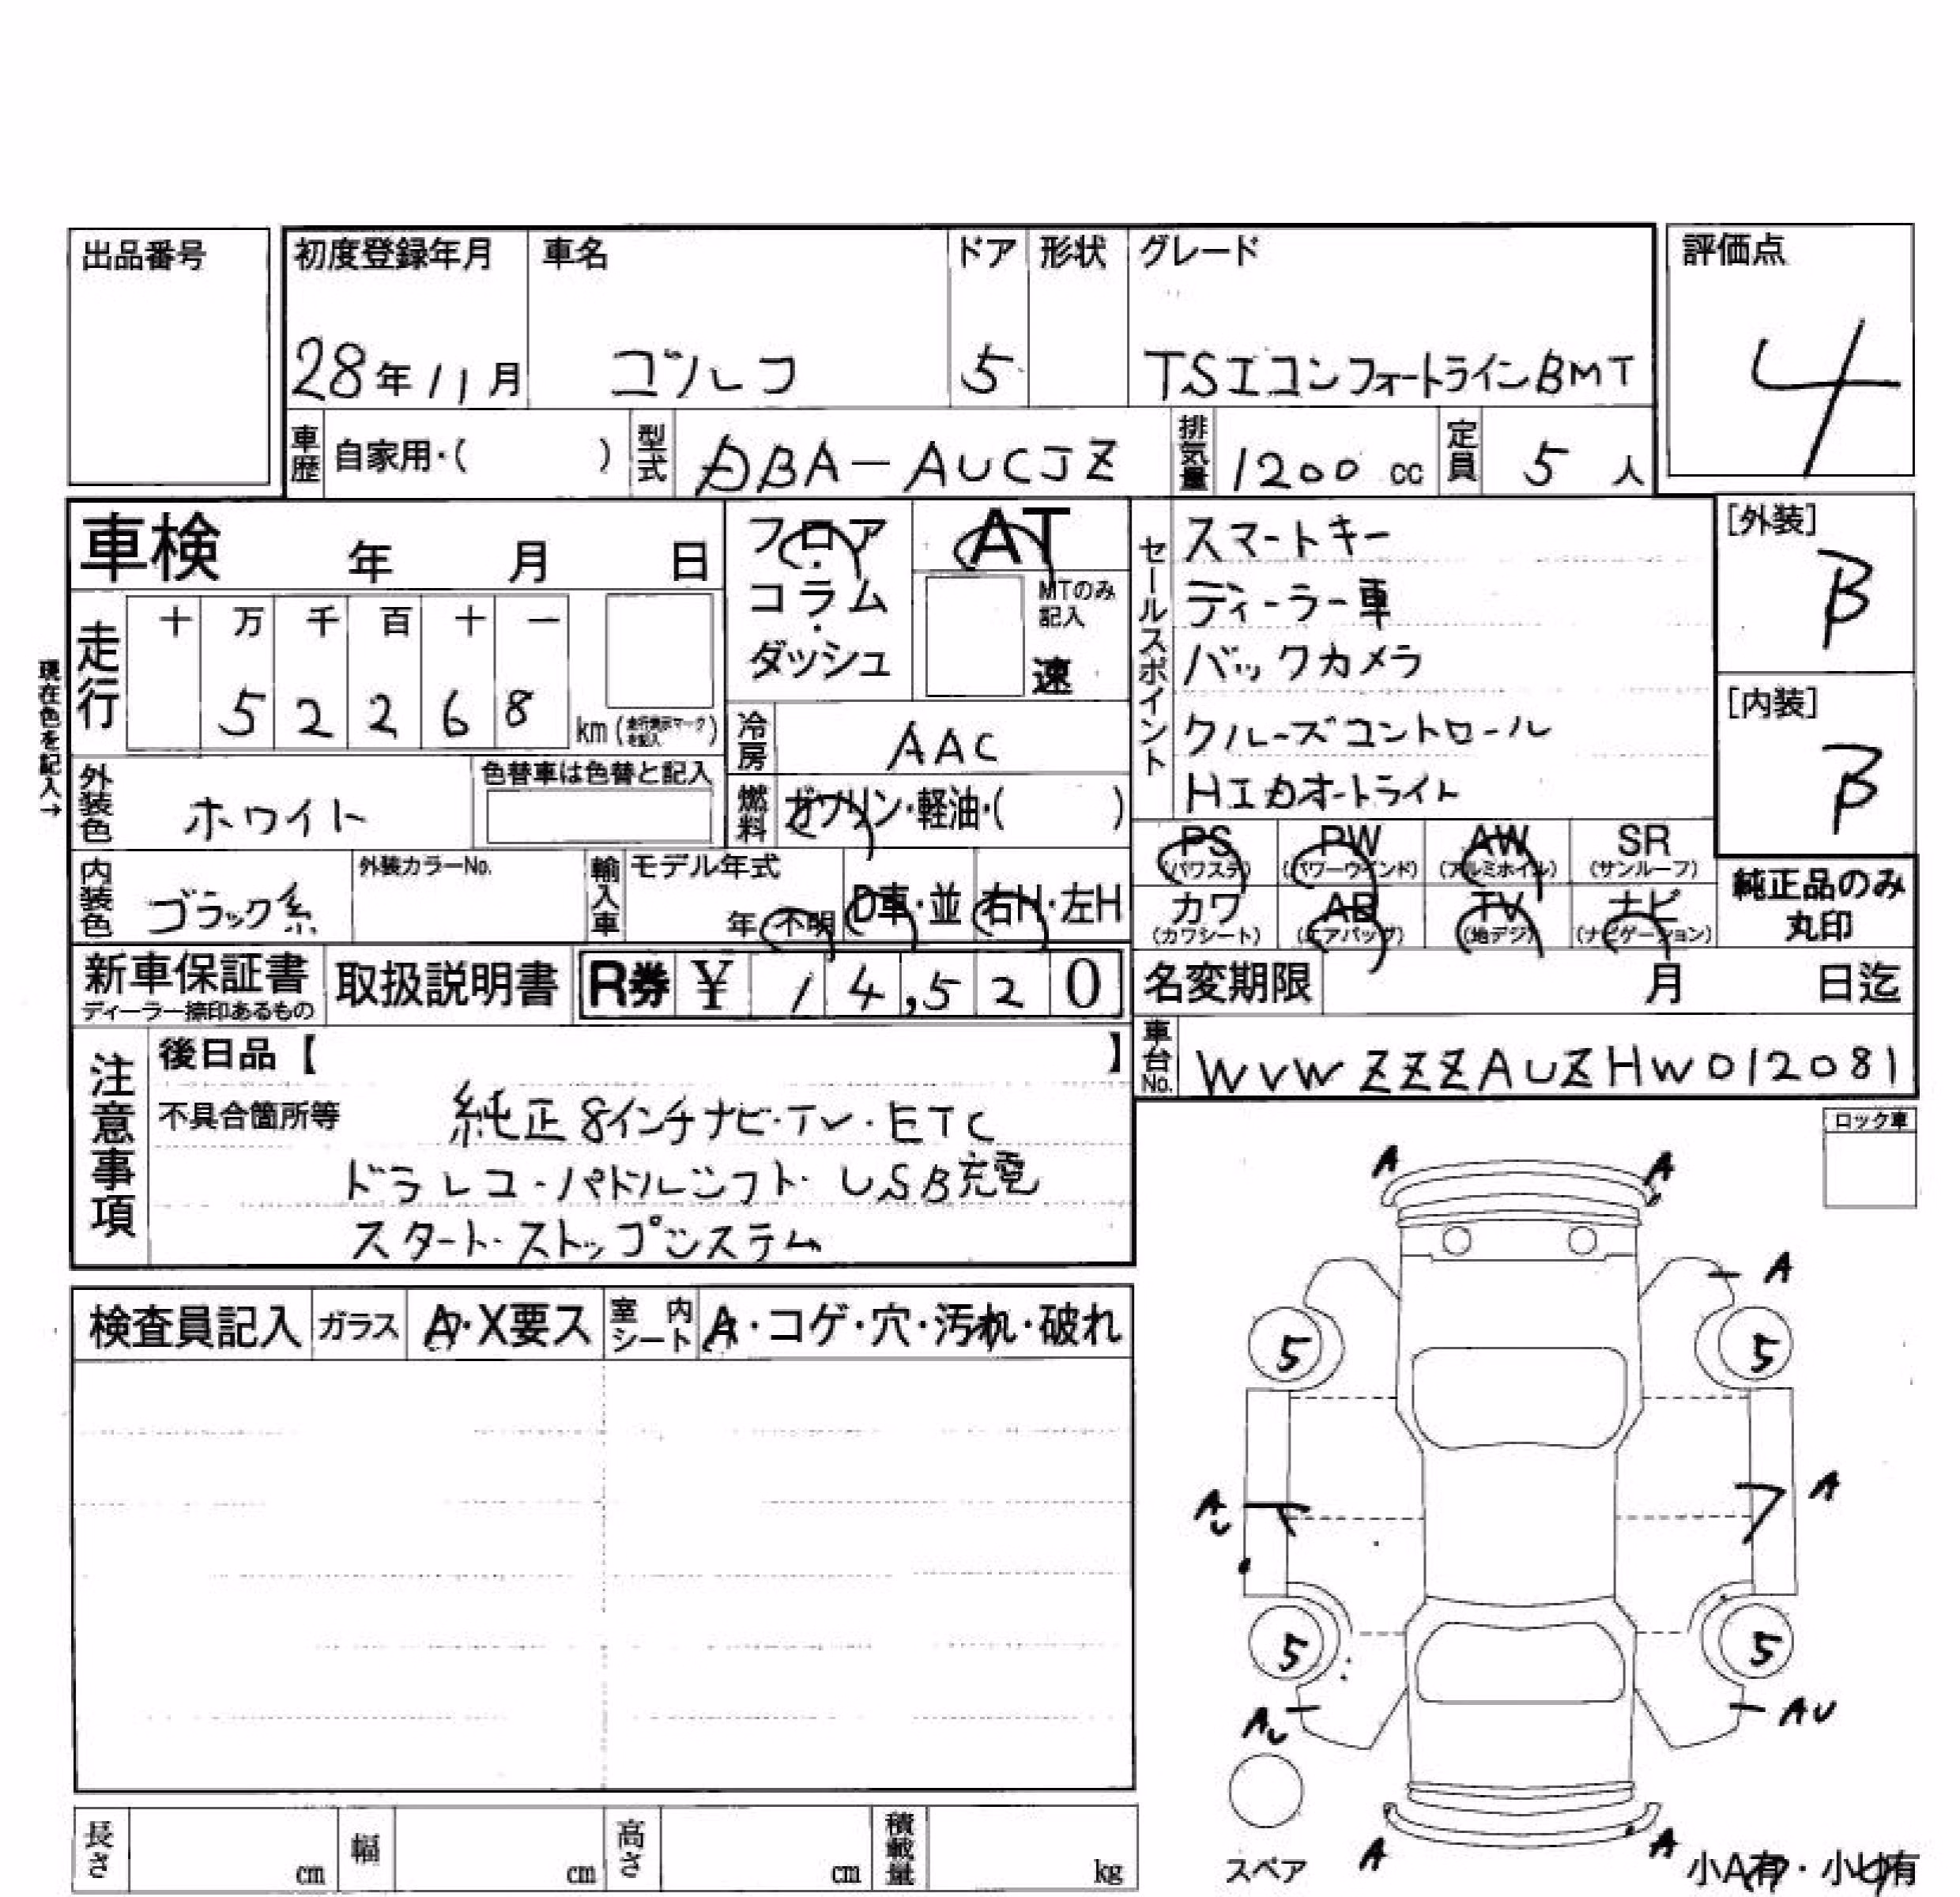 出品番号
初度登録年月 車名 ドア 形状 グレード 評価点
28年11月 ゴルフ 5 TSIコンフォートラインBMT 4
車歴 自家用・( ) 型式 DBA-AUCJZ 排気量 1200 cc 定員 5 人
車検 年 月 日
フロア・コラム・ダッシュ
AT
MTのみ記入
速
セールスポイント
スマートキー
ディーラー車
バックカメラ
クルーズコントロール
HIDオートライト
[外装]
B
[内装]
B
現在色を記入→
走行 十 万 千 百 十 一
5 2 2 6 8 km (走行表示マークを記入)
冷房 AAC
外装色 ホワイト 色替車は色替と記入
燃料 ガソリン・軽油・( )
PS (パワステ) PW (パワーウインド) AW (アルミホイル) SR (サンルーフ)
カワ (カワシート) AB (エアバッグ) TV (地デジ) ナビ (ナビゲーション)
純正品のみ丸印
内装色 ブラック系 外装カラーNo. 輸入車 モデル年式 年・不明 D車・並 右H・左H
新車保証書 ディーラー捺印あるもの 取扱説明書 R券 ¥ 14,520
名変期限 月 日迄
車台No. WVWZZZAUZHW012081
注意事項
後日品【 】
不具合箇所等 純正8インチナビ・TV・ETC
ドラレコ・パドルシフト・USB充電
スタート・ストップシステム
ロック車
A A
A
5 5
AU A
5 5
AU AU
スペア A A 小A有・小U有
検査員記入 ガラス A・X要ス 室内シート A・コゲ・穴・汚れ・破れ
長さ cm 幅 cm 高さ cm 積載量 kg